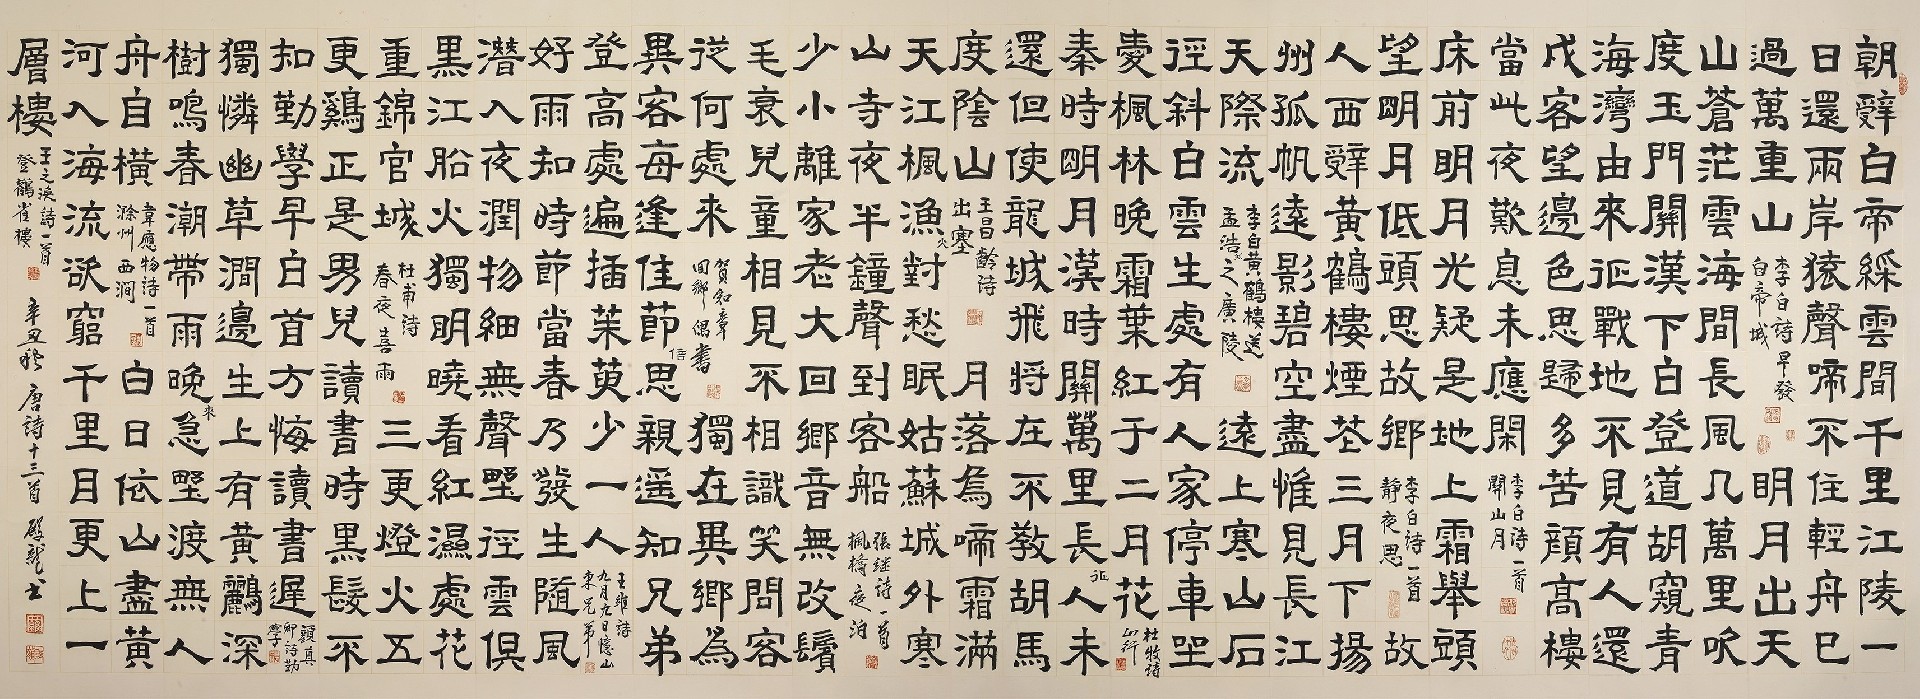 朝辭白帝綵雲間千里江陵一
日還兩岸猿聲啼不住輕舟已
過萬重山
李白詩早發
白帝城
明月出天
山蒼茫雲海間長風几萬里吹
度玉門關漢下白登道胡窺青
海灣由來征戰地不見有人還
戍客望邊色思歸多苦顔高樓
當此夜歎息未應閑
李白詩一首
關山月
床前明月光疑是地上霜舉頭
望明月低頭思故鄉
李白詩一首
靜夜思
故
人西辭黃鶴樓煙花三月下揚
州孤帆遠影碧空盡惟見長江
天際流
李白黃鶴樓送
孟浩然之廣陵
遠上寒山石
徑斜白雲生處有人家停車坐
愛楓林晚霜葉紅于二月花
杜牧詩
山行
秦時明月漢時關萬里長征人未
還但使龍城飛將在不教胡馬
度陰山
王昌齡詩
出塞
月落烏啼霜滿
天江楓漁火對愁眠姑蘇城外寒
山寺夜半鐘聲到客船
張继詩一首
楓橋夜泊
少小離家老大回鄉音無改鬢
毛衰兒童相見不相識笑問客
從何處來
賀知章
回鄉偶書
獨在異鄉為
異客每逢佳節倍思親遥知兄弟
登高處遍插茱萸少一人
王維詩
九月九日憶山
東兄弟
好雨知時節當春乃發生隨風
潛入夜潤物細無聲野徑雲俱
黑江船火獨明曉看紅濕處花
重錦官城
杜甫詩
春夜喜雨
三更燈火五
更鷄正是男兒讀書時黑髮不
知勤學早白首方悔讀書遲
顏真
卿詩勸
學
獨憐幽草澗邊生上有黃鸝深
樹鳴春潮帶雨晚來急野渡無人
舟自橫
韋應物詩一首
滁州西澗
白日依山盡黃
河入海流欲窮千里目更上一
層樓
王之渙詩一首
登鸛雀樓
辛丑秋唐詩十三首